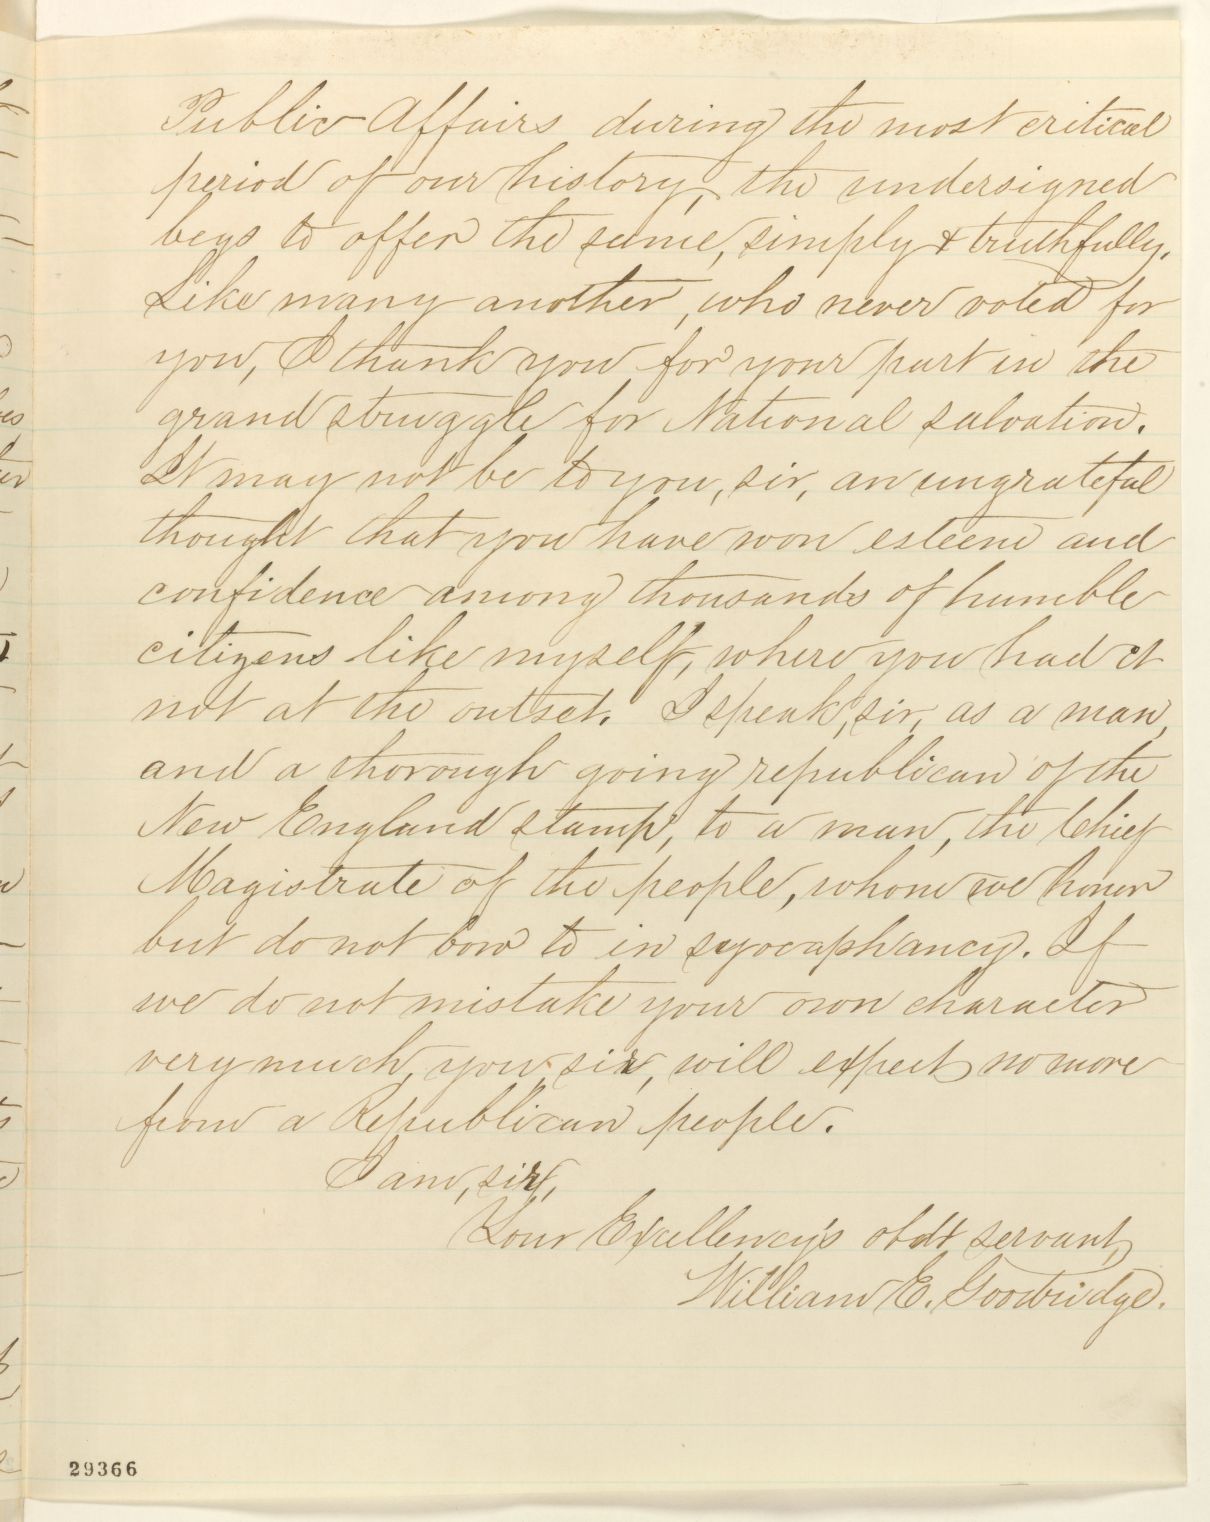 Public Affairs during the most critical
period of our history, the undersigned
begs to offer the same, simply & truthfully.
Like many another, who never voted for
you, I thank you for your part in the
grand struggle for National salvation.
It may not be to you, sir, an ungrateful
thought that you have won esteem and
confidence among thousands of humble
citizens like myself, where you had it
not at the outset. I speak, sir, as a man,
and a thorough going republican of the
New England stamp, to a man, the Chief
Magistrate of the people, whom we honor
but do not bow to in sycophancy. If
we do not mistake your own character
very much, you, sir, will expect no more
from a Republican people.
I am, sir,
Your Excellency's obdt servant,
William E. Goodridge.
29366